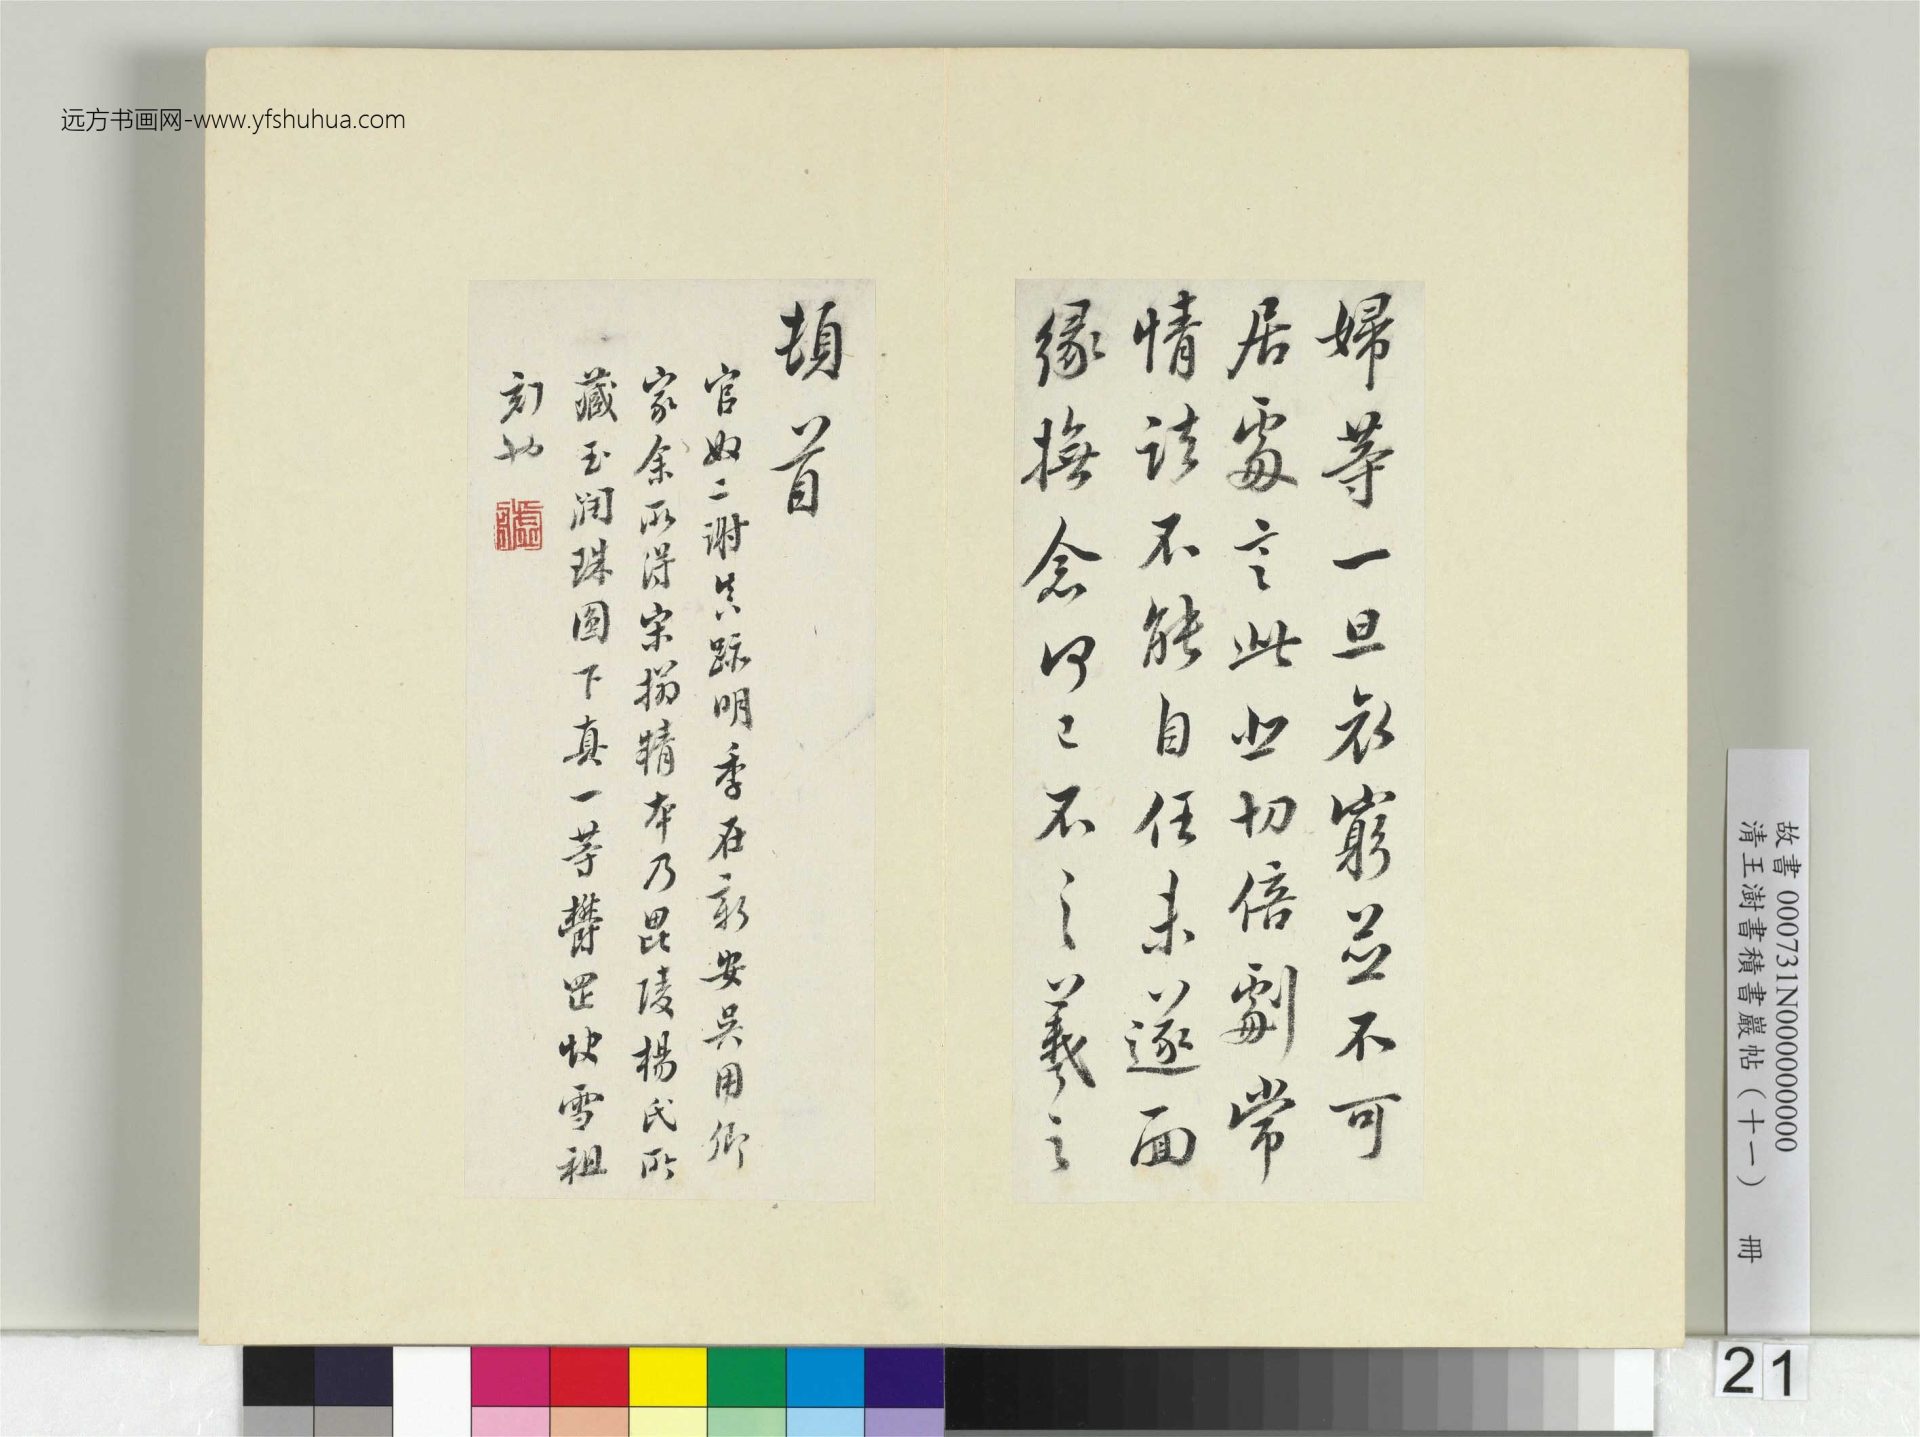 远方书画网-www.yfshuhua.com
婦等一旦哀窮並不可
居處言此悲切倍劇常
情諸不能自任未遂面
緣撫念何已不一一羲之
頓首
官奴二謝真跡明季在新安吳用卿
家余所得宋搨精本乃毘陵楊氏所
藏玉潤珠圓下真一等鬱罡快雪祖
刻也
故書 000731N000000000
清王澍書積書巖帖（十一） 冊
21